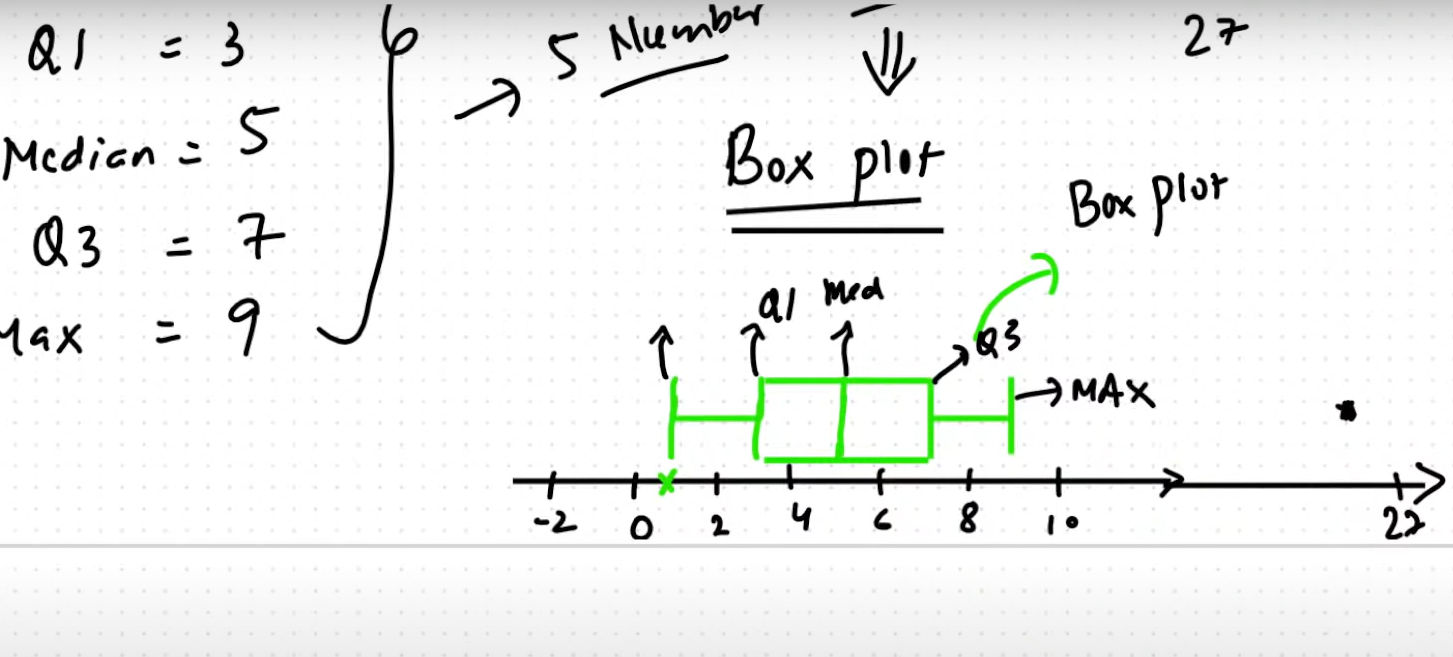 Q1 = 3
Median = 5
Q3 = 7
Max = 9
5 Number
27
Box plot
Box plot
Q1 Med
Q3
MAX
-2 0 2 4 6 8 10 22